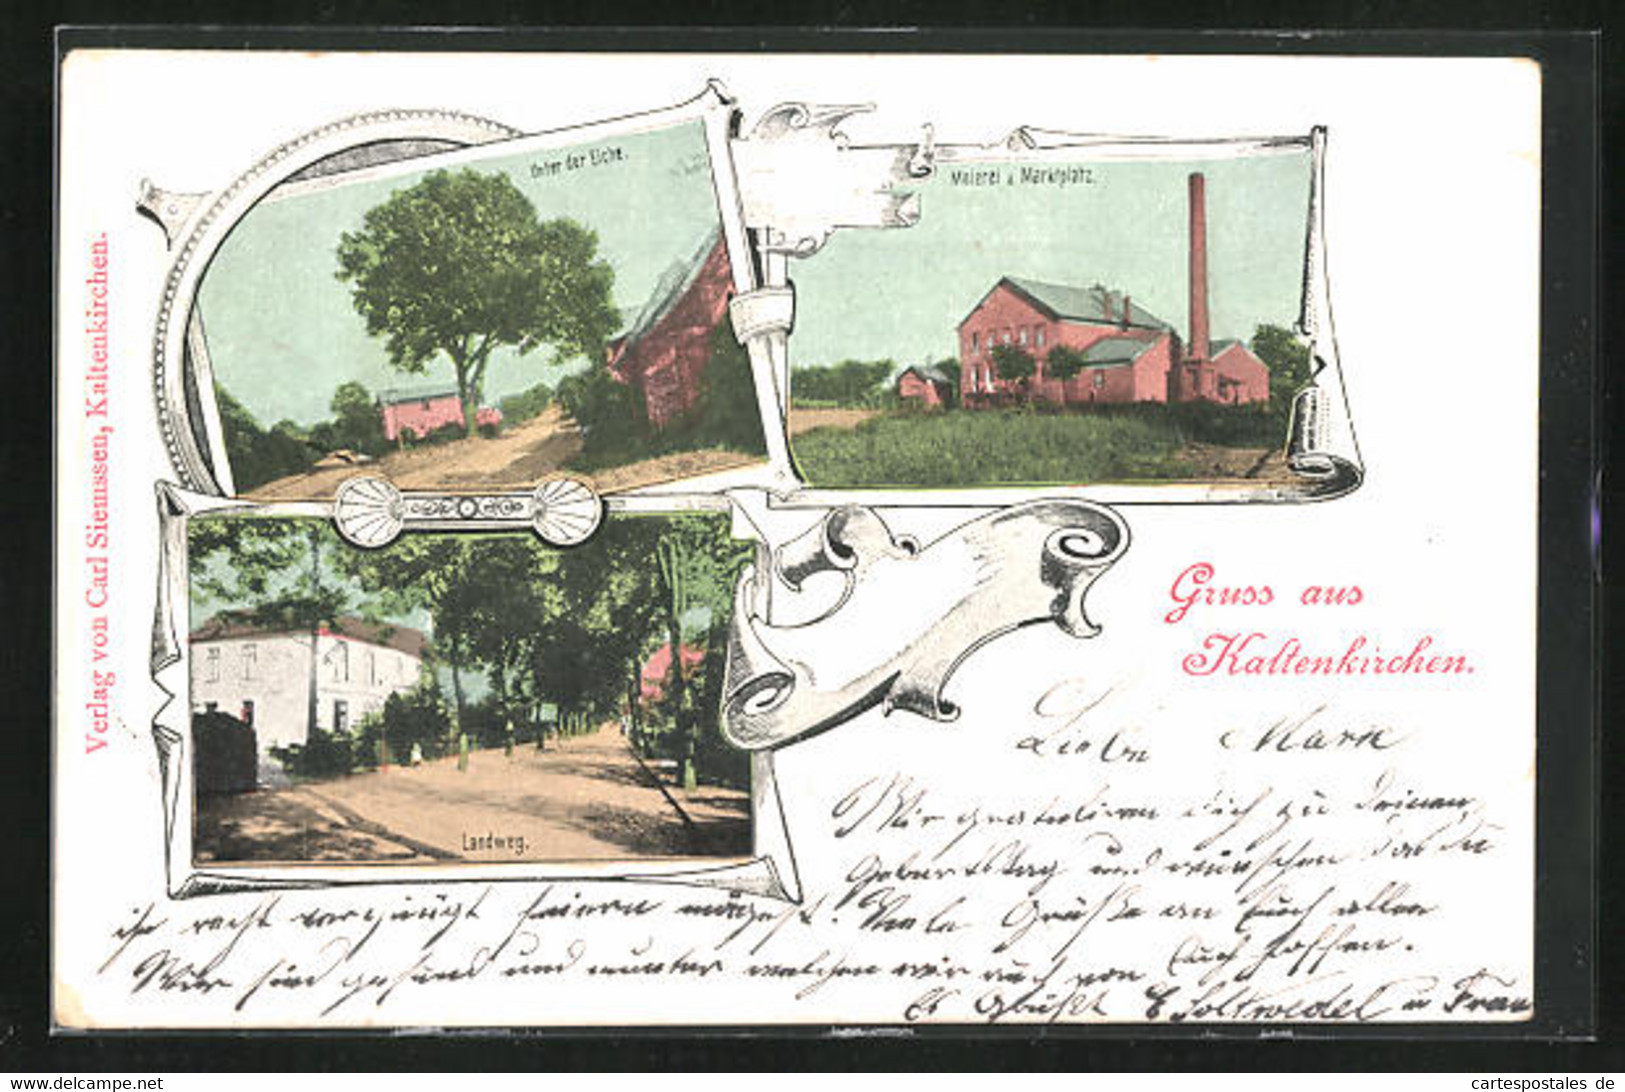 Verlag von Carl Siemssen, Kaltenkirchen.
Unter der Eiche.
Meierei u Marktplatz.
Landweg.
Gruss aus
Kaltenkirchen.
Liebe Marie
Wir gratuliren dich zu deinen
Geburtstag und wünschen das du
ihn recht vergnügt feiern mögest. Viele Grüße an Euch allen
Wir sind gesund und munter welches wir auch von Euch hoffen.
Es Grüßt E Soltwedel u Frau
cartespostales.de